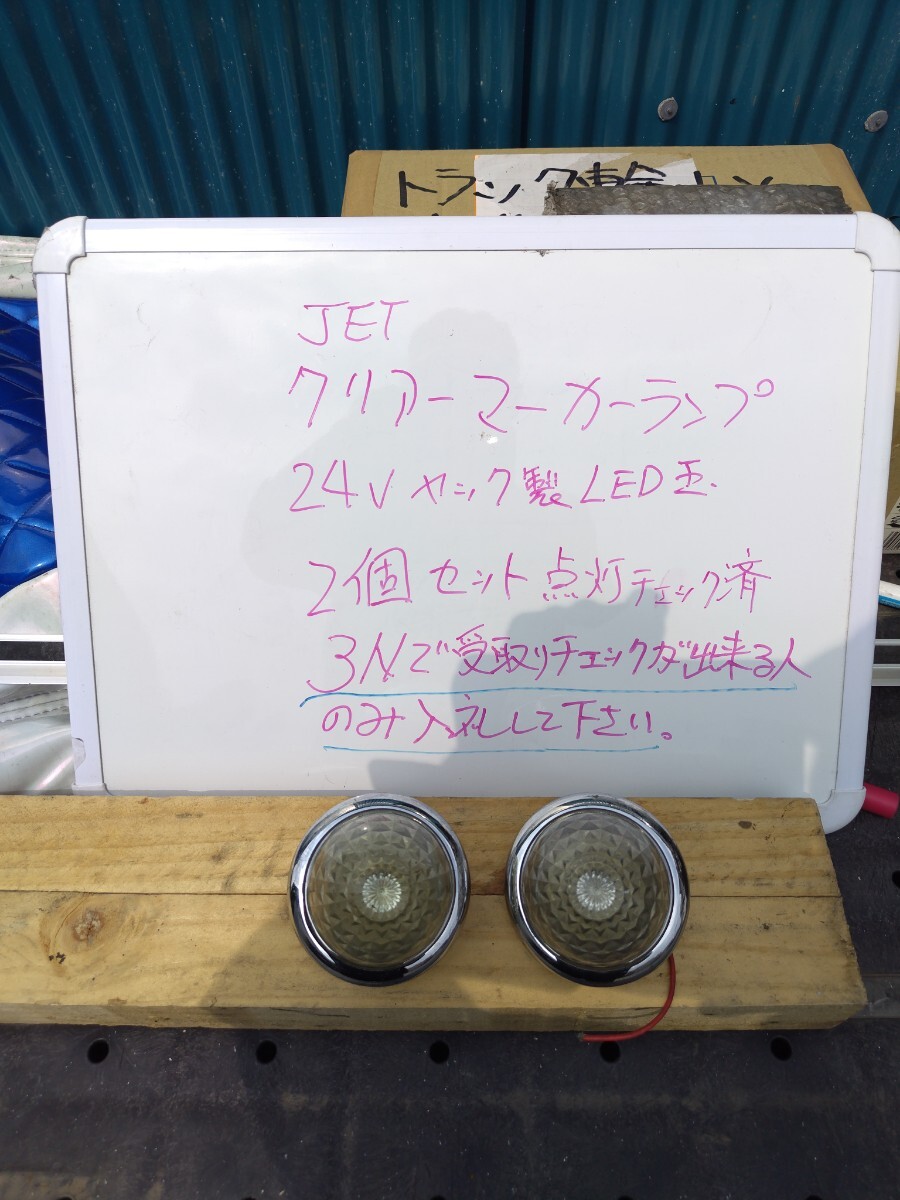 トラック
JET
クリアーマーカーランプ
24V ヤック製LED玉.
2個セット点灯チェック済
3Nで受取りチェックが出来る人
のみ入札して下さい。